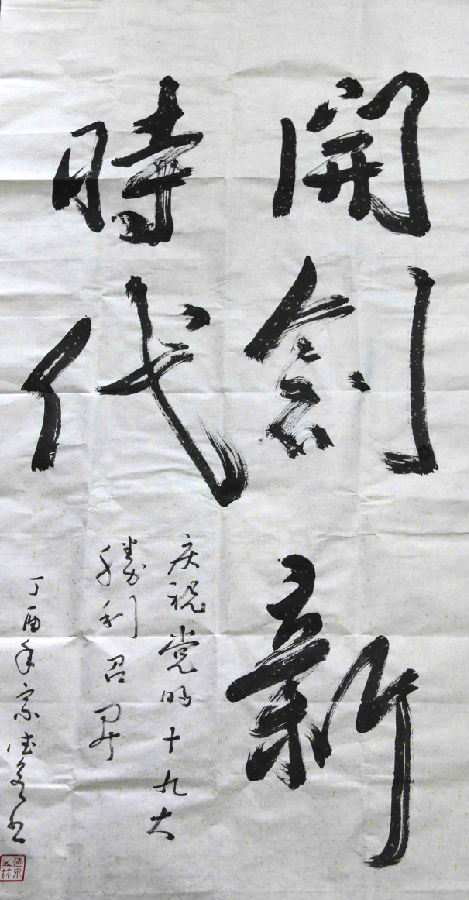 開創新
時代
庆祝党的十九大
勝利召开
丁酉年宗德